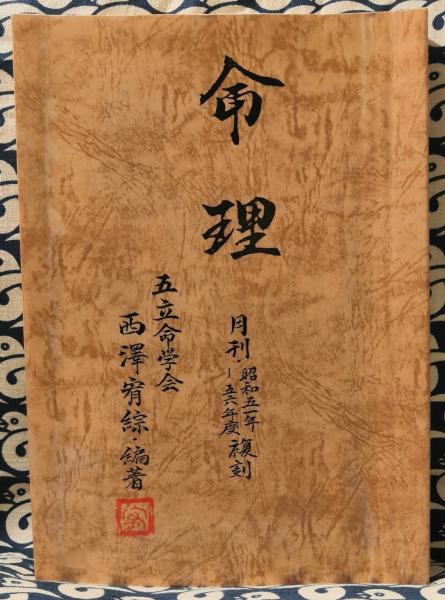 命理
月刊・昭和五一年
－五六年度 複刻
五立命学会
西澤宥綜・編著